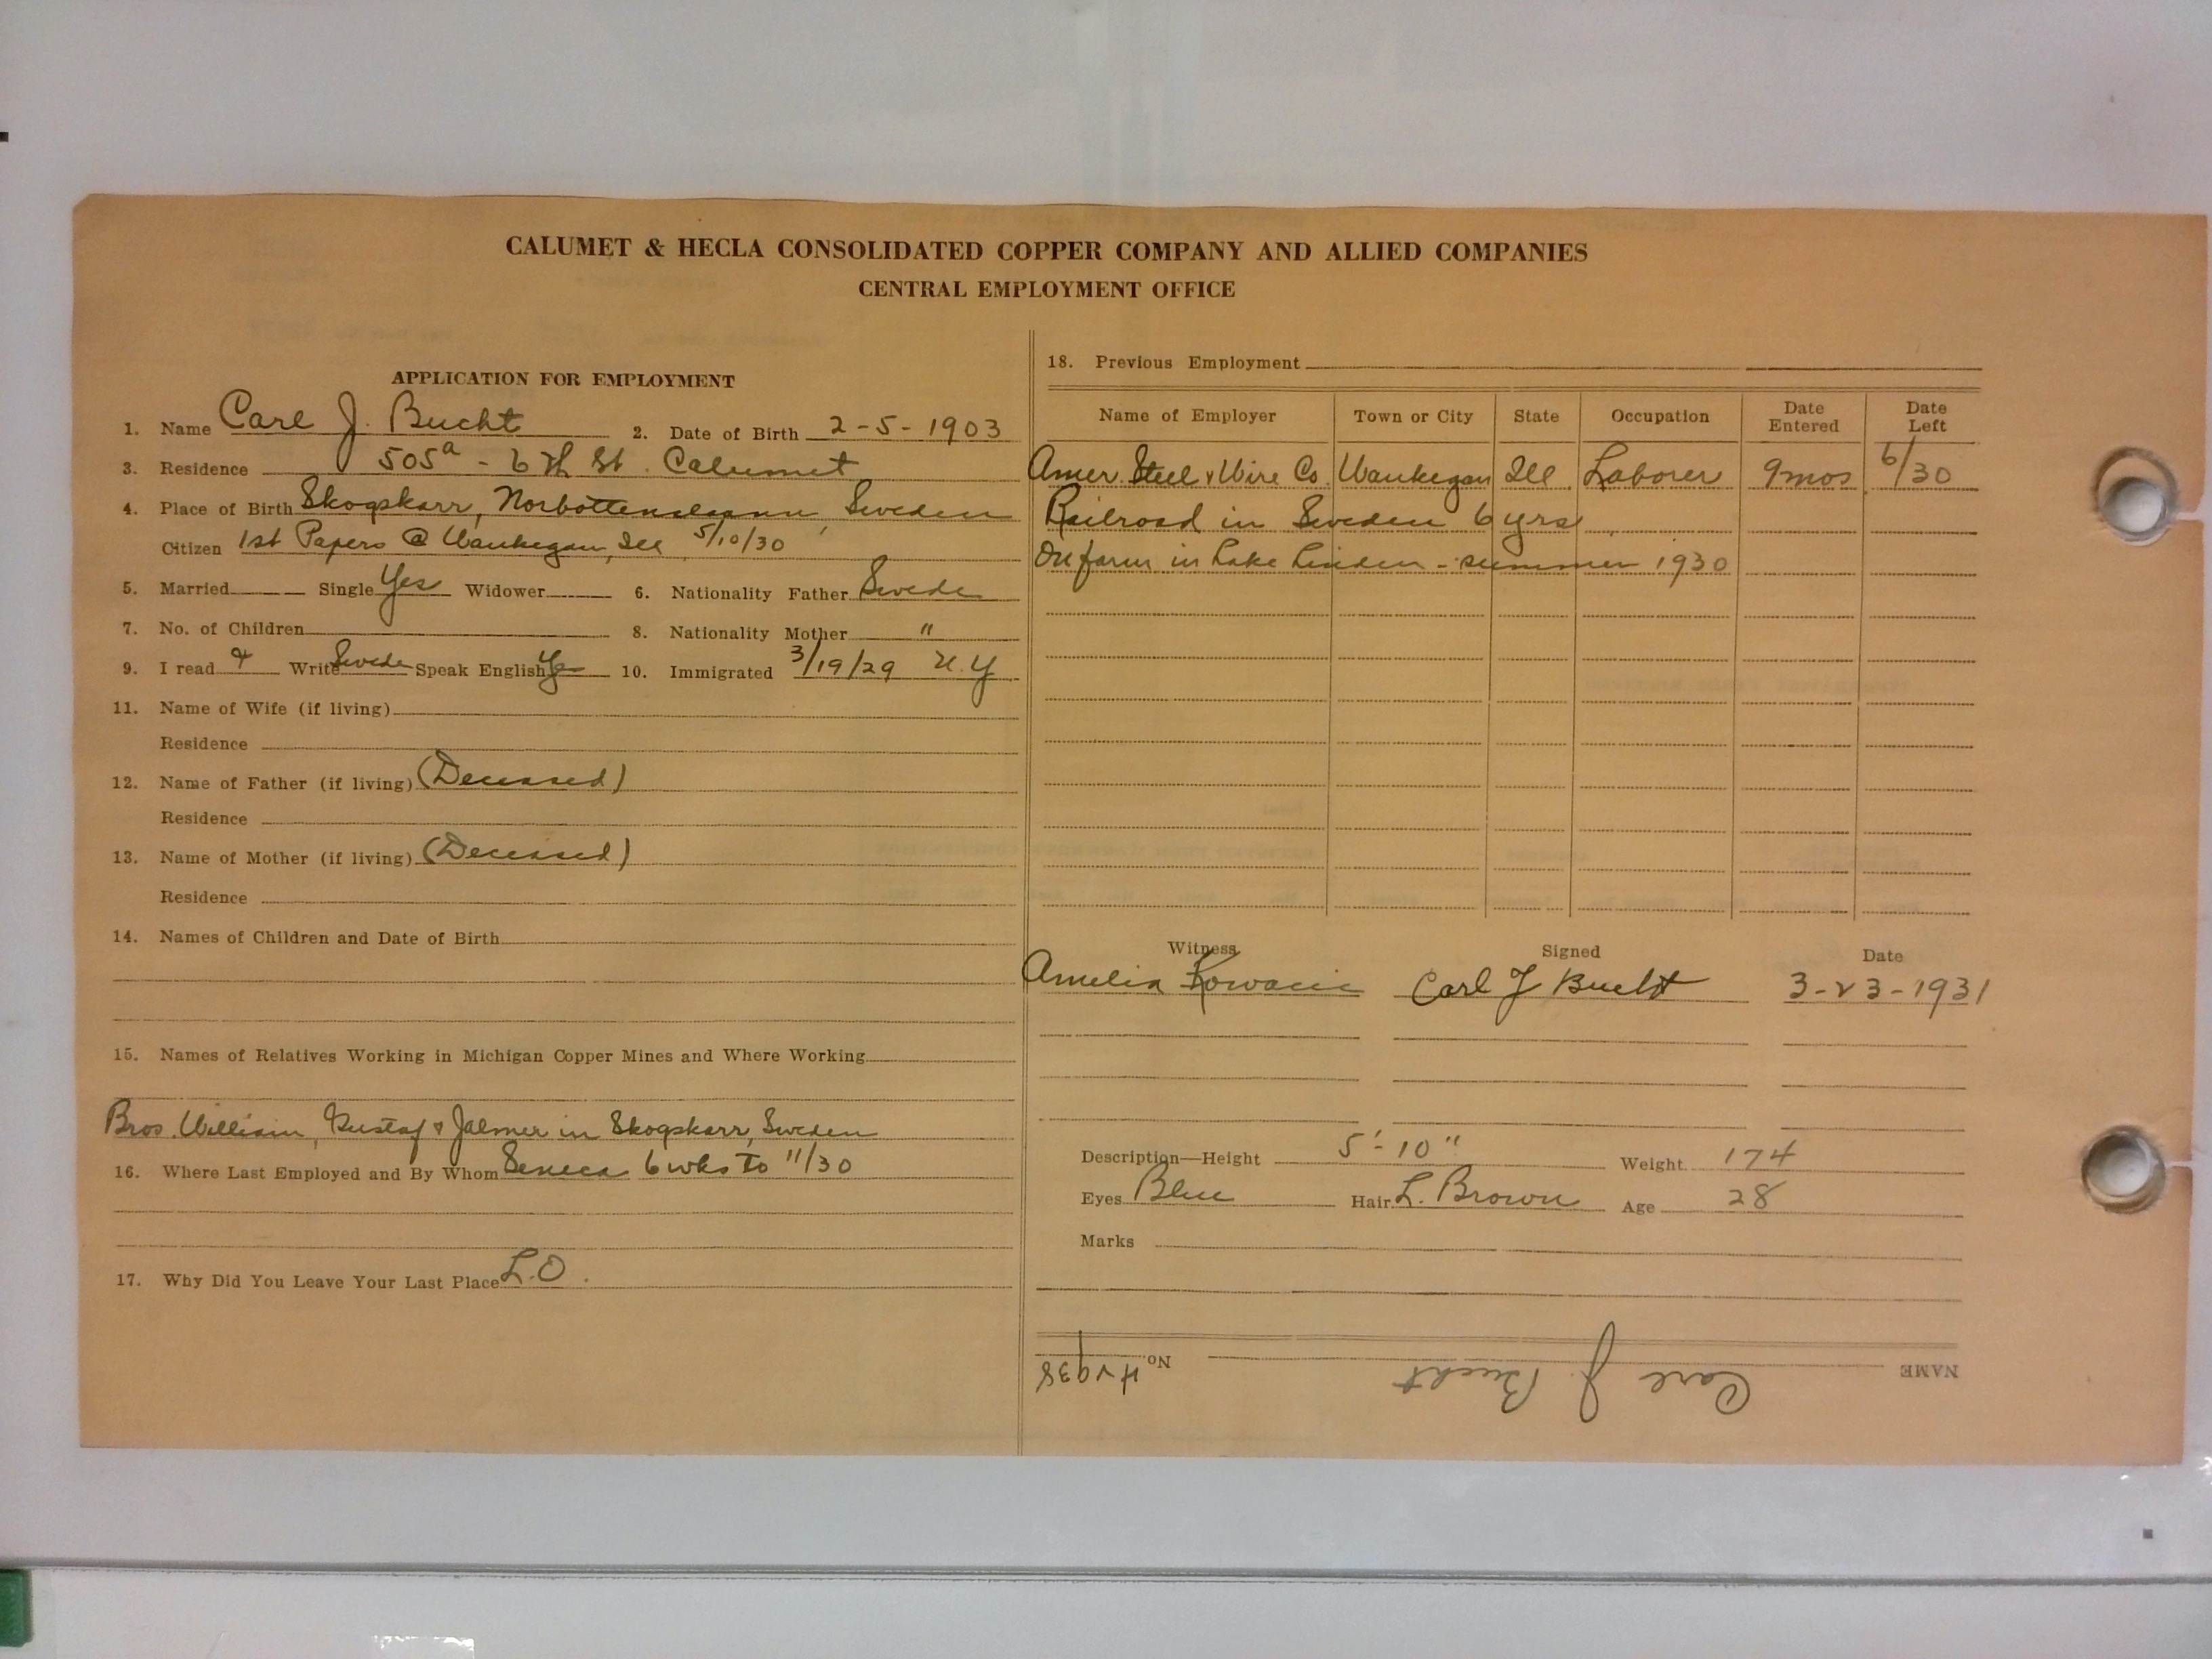 CALUMET & HECLA CONSOLIDATED COPPER COMPANY AND ALLIED COMPANIES
CENTRAL EMPLOYMENT OFFICE
APPLICATION FOR EMPLOYMENT
1. Name Carl J. Bucht 2. Date of Birth 2-5-1903
3. Residence 505a - 6th St. Calumet
4. Place of Birth Skogskarr, Norbottenslaann, Sweden
Citizen 1st Papers @ Waukegan, Ill 5/10/30
5. Married Single Yes Widower 6. Nationality Father Swede
7. No. of Children 8. Nationality Mother "
9. I read & Write Swede Speak English Yes 10. Immigrated 3/19/29 N.Y
11. Name of Wife (if living)
Residence
12. Name of Father (if living) (Deceased)
Residence
13. Name of Mother (if living) (Deceased)
Residence
14. Names of Children and Date of Birth
15. Names of Relatives Working in Michigan Copper Mines and Where Working
Bros. William, Gustaf & Jalmer in Skogskarr, Sweden
16. Where Last Employed and By Whom Seneca 6 wks to 11/30
17. Why Did You Leave Your Last Place L.O.
18. Previous Employment
Name of Employer Town or City State Occupation Date Entered Date Left
Amer. Steel & Wire Co. Waukegan Ill Laborer 9mos 6/30
Railroad in Sweden 6 yrs
On farm in Lake Linden - summer 1930
Witness Signed Date
Amelia Kowacic Carl J Bucht 3-23-1931
Description—Height 5'-10" Weight 174
Eyes Blue Hair L. Brown Age 28
Marks
NAME Carl J. Bucht No. H2938